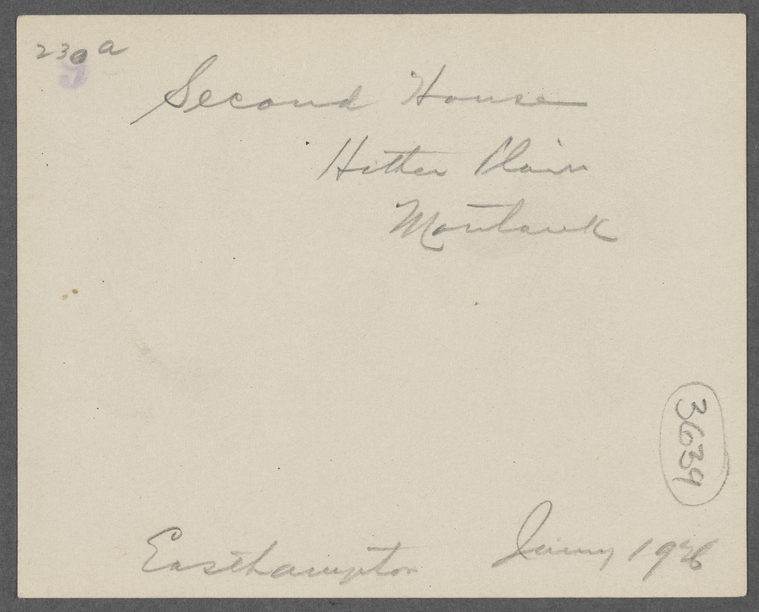 230 a
Second House
Hither Plain
Montauk
3639
Easthampton